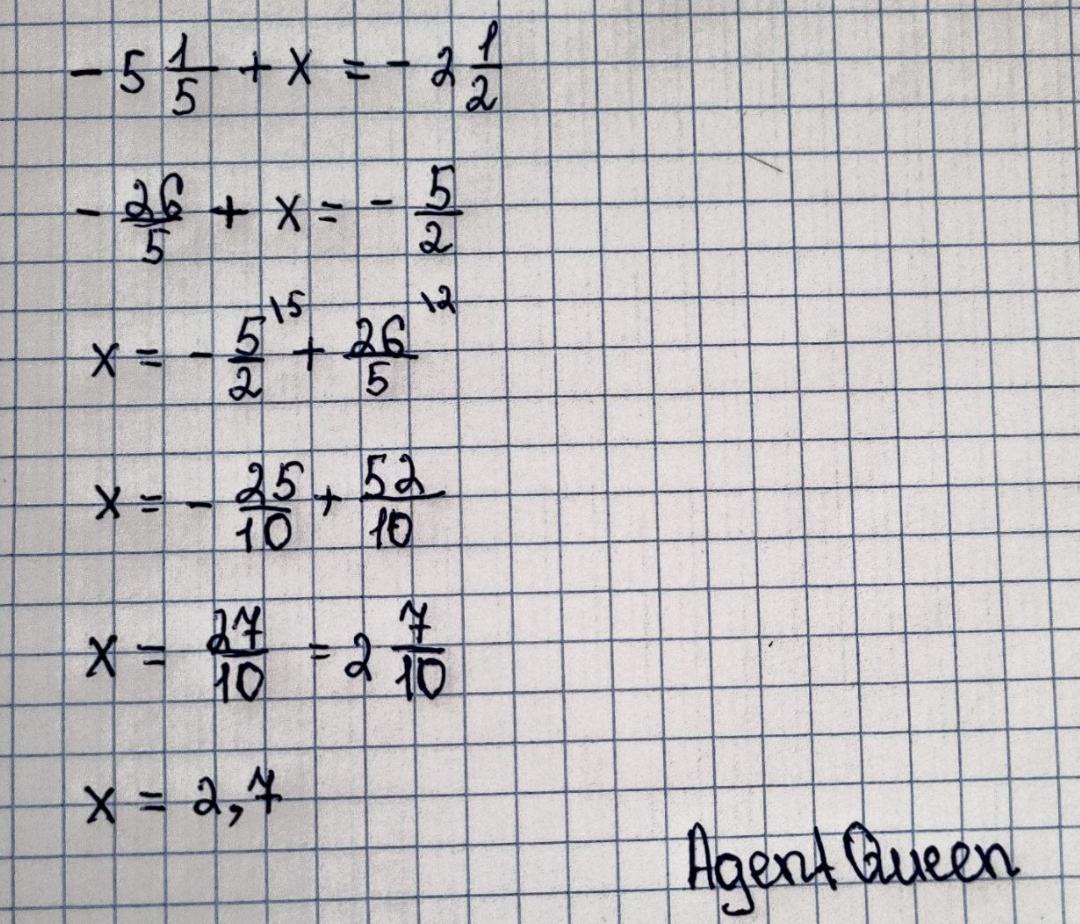 - 5 1/5 + x = - 2 1/2
- 26/5 + x = - 5/2
x = - 5/2 \5 + 26/5 \2
x = - 25/10 + 52/10
x = 27/10 = 2 7/10
x = 2,7
Agent Queen